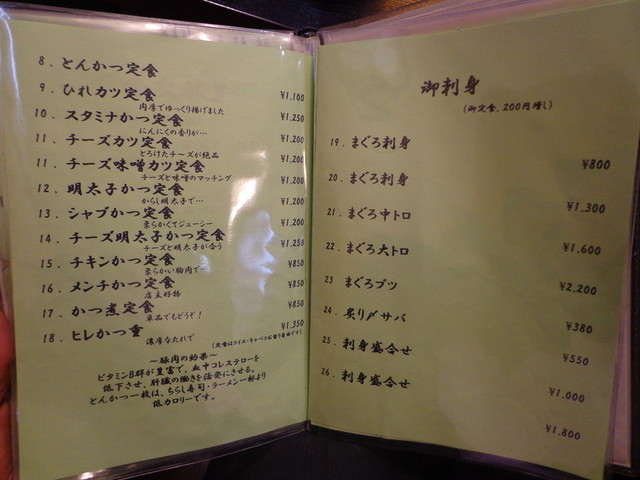 8. とんかつ定食
¥1,100
9. ひれカツ定食
肉厚でゆっくり揚げました
¥1,250
10. スタミナかつ定食
にんにくの香りが…
¥1,200
11. チーズカツ定食
とろけたチーズが絶品
¥1,200
11. チーズ味噌カツ定食
チーズと味噌のマッチング
¥1,200
12. 明太子かつ定食
からし明太子で…
¥1,200
13. シャブかつ定食
柔らかくてジューシー
¥1,200
14. チーズ明太子かつ定食
チーズと明太子が合う
¥1,250
15. チキンかつ定食
柔らかい胸肉で…
¥850
16. メンチかつ定食
店主好物
¥850
17. かつ煮定食
単品でもどうぞ!
¥850
18. ヒレかつ重
濃厚なたれで
¥1,350
(定食はライス・キャベツお替り自由です)
〜豚肉の効果〜
ビタミンB群が豊富で、血中コレステローを
低下させ、肝臓の働きを活発にさせる。
とんかつ一枚は、ちらし寿司・ラーメン一杯より
低カロリーです。
御刺身
(御定食、200円増し)
19. まぐろ刺身
¥800
20. まぐろ刺身
¥1,300
21. まぐろ中トロ
¥1,600
22. まぐろ大トロ
¥2,200
23 まぐろブツ
¥380
24. 炙り〆サバ
¥550
25. 刺身盛合せ
¥1,000
26. 刺身盛合せ
¥1,800